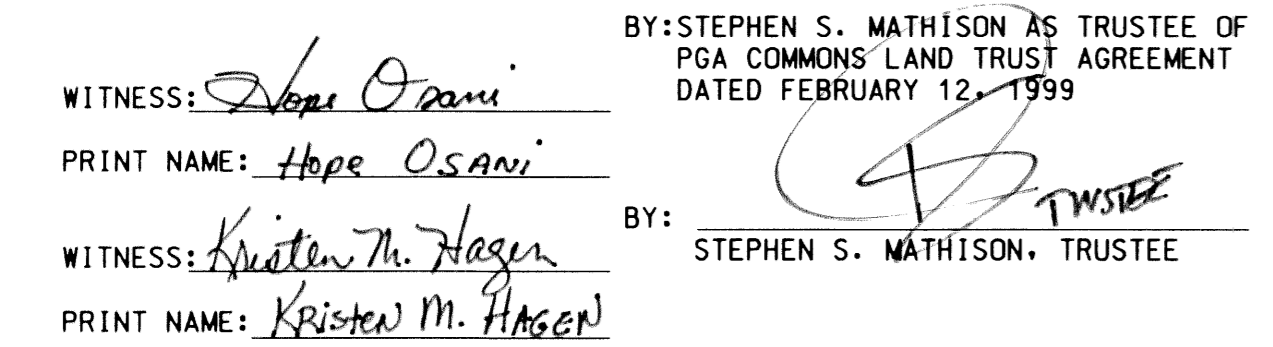 WITNESS: Hope Osani
PRINT NAME: Hope OSANi
WITNESS: Kristen M. Hagen
PRINT NAME: KRisteN M. HAGEN
BY:STEPHEN S. MATHISON AS TRUSTEE OF
PGA COMMONS LAND TRUST AGREEMENT
DATED FEBRUARY 12, 1999
BY: TRUSTEE
STEPHEN S. MATHISON, TRUSTEE